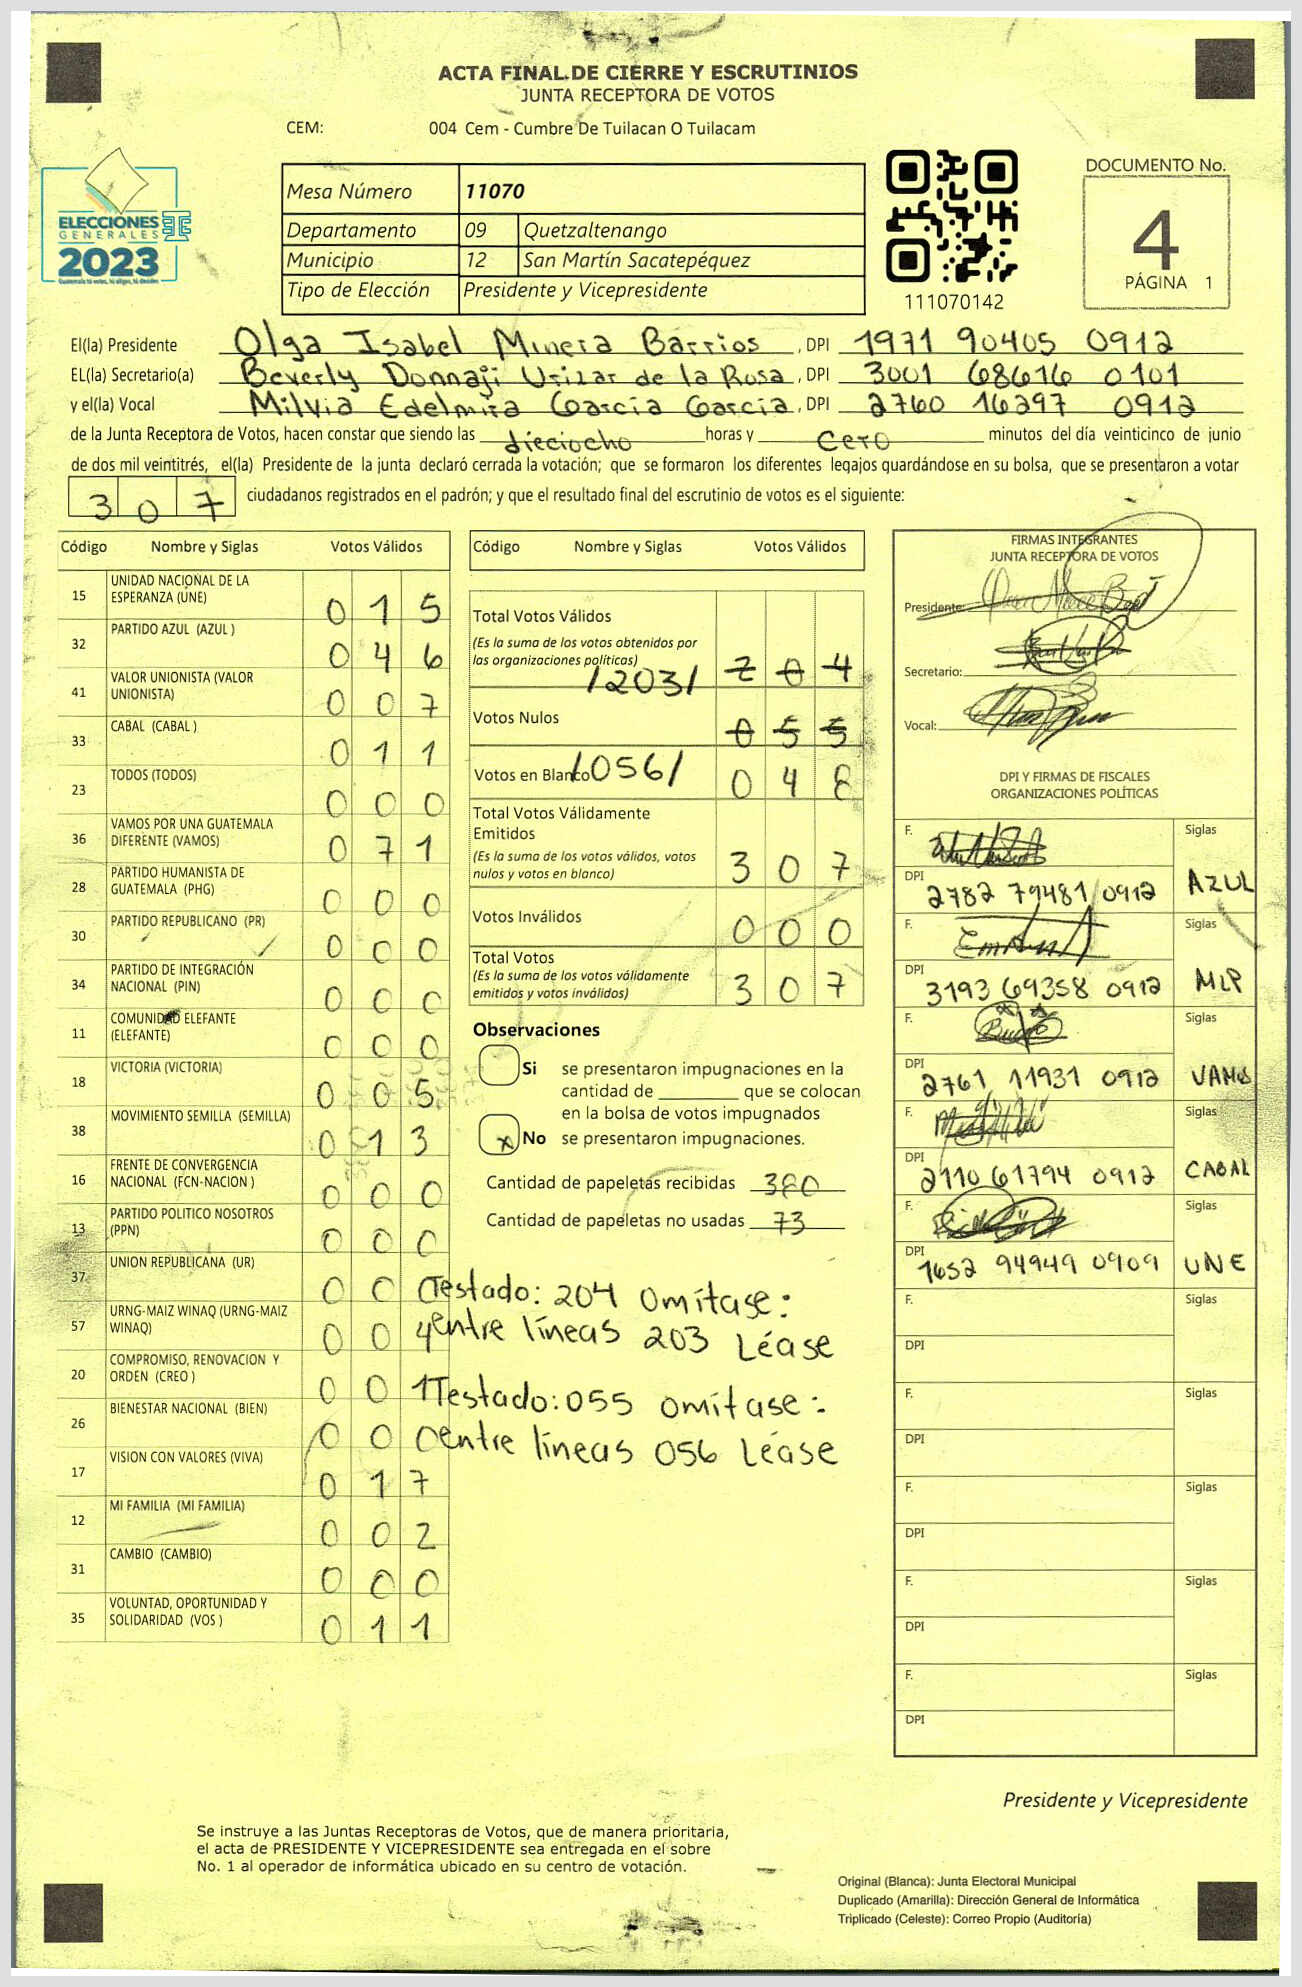 ACTA FINAL DE CIERRE Y ESCRUTINIOS
JUNTA RECEPTORA DE VOTOS
CEM: 004 Cem - Cumbre De Tuilacan O Tuilacam
ELECCIONES
GENERALES
2023
Mesa Número 11070
Departamento 09 Quetzaltenango
Municipio 12 San Martín Sacatepéquez
Tipo de Elección Presidente y Vicepresidente
111070142
DOCUMENTO No.
4
PÁGINA 1
El(la) Presidente Olga Isabel Minera Barrios, DPI 1971 90405 0912
EL(la) Secretario(a) Beverly Donnaji Urizar de la Rosa, DPI 3001 68616 0101
y el(la) Vocal Milvia Edelmira García García, DPI 2760 16297 0912
de la Junta Receptora de Votos, hacen constar que siendo las dieciocho horas y cero minutos del día veinticinco de junio
de dos mil veintitrés, el(la) Presidente de la junta declaró cerrada la votación; que se formaron los diferentes legajos guardándose en su bolsa, que se presentaron a votar
307 ciudadanos registrados en el padrón; y que el resultado final del escrutinio de votos es el siguiente:
Código Nombre y Siglas Votos Válidos
15 UNIDAD NACIONAL DE LA ESPERANZA (UNE) 015
32 PARTIDO AZUL (AZUL ) 046
41 VALOR UNIONISTA (VALOR UNIONISTA) 007
33 CABAL (CABAL ) 011
23 TODOS (TODOS) 000
36 VAMOS POR UNA GUATEMALA DIFERENTE (VAMOS) 071
28 PARTIDO HUMANISTA DE GUATEMALA (PHG) 000
30 PARTIDO REPUBLICANO (PR) 000
34 PARTIDO DE INTEGRACIÓN NACIONAL (PIN) 000
11 COMUNIDAD ELEFANTE (ELEFANTE) 000
18 VICTORIA (VICTORIA) 005
38 MOVIMIENTO SEMILLA (SEMILLA) 013
16 FRENTE DE CONVERGENCIA NACIONAL (FCN-NACION ) 000
13 PARTIDO POLITICO NOSOTROS (PPN) 000
37 UNION REPUBLICANA (UR) 000
57 URNG-MAIZ WINAQ (URNG-MAIZ WINAQ) 004
20 COMPROMISO, RENOVACION Y ORDEN (CREO ) 001
26 BIENESTAR NACIONAL (BIEN) 000
17 VISION CON VALORES (VIVA) 017
12 MI FAMILIA (MI FAMILIA) 002
31 CAMBIO (CAMBIO) 000
35 VOLUNTAD, OPORTUNIDAD Y SOLIDARIDAD (VOS ) 011
Código Nombre y Siglas Votos Válidos
Total Votos Válidos
(Es la suma de los votos obtenidos por
las organizaciones políticas)
/203/ 204
Votos Nulos 055
/056/
Votos en Blanco 048
Total Votos Válidamente
Emitidos
(Es la suma de los votos válidos, votos
nulos y votos en blanco) 307
Votos Inválidos 000
Total Votos
(Es la suma de los votos válidamente
emitidos y votos inválidos) 307
Observaciones
Si se presentaron impugnaciones en la
cantidad de ________ que se colocan
en la bolsa de votos impugnados
x No se presentaron impugnaciones.
Cantidad de papeletas recibidas 380
Cantidad de papeletas no usadas 73
Testado: 204 Omítase:
entre líneas 203 Léase
Testado: 055 omítase:
entre líneas 056 Léase
FIRMAS INTEGRANTES
JUNTA RECEPTORA DE VOTOS
Presidente:
Secretario:
Vocal:
DPI Y FIRMAS DE FISCALES
ORGANIZACIONES POLÍTICAS
F. Siglas
DPI 2782 79481 0912 AZUL
F. Siglas
DPI 3193 69358 0912 MLP
F. Siglas
DPI 2761 11931 0912 VAMOS
F. Siglas
DPI 2110 61794 0912 CABAL
F. Siglas
DPI 1652 94949 0909 UNE
F. Siglas
DPI
F. Siglas
DPI
F. Siglas
DPI
F. Siglas
DPI
F. Siglas
DPI
Presidente y Vicepresidente
Se instruye a las Juntas Receptoras de Votos, que de manera prioritaria,
el acta de PRESIDENTE Y VICEPRESIDENTE sea entregada en el sobre
No. 1 al operador de informática ubicado en su centro de votación.
Original (Blanca): Junta Electoral Municipal
Duplicado (Amarilla): Dirección General de Informática
Triplicado (Celeste): Correo Propio (Auditoría)